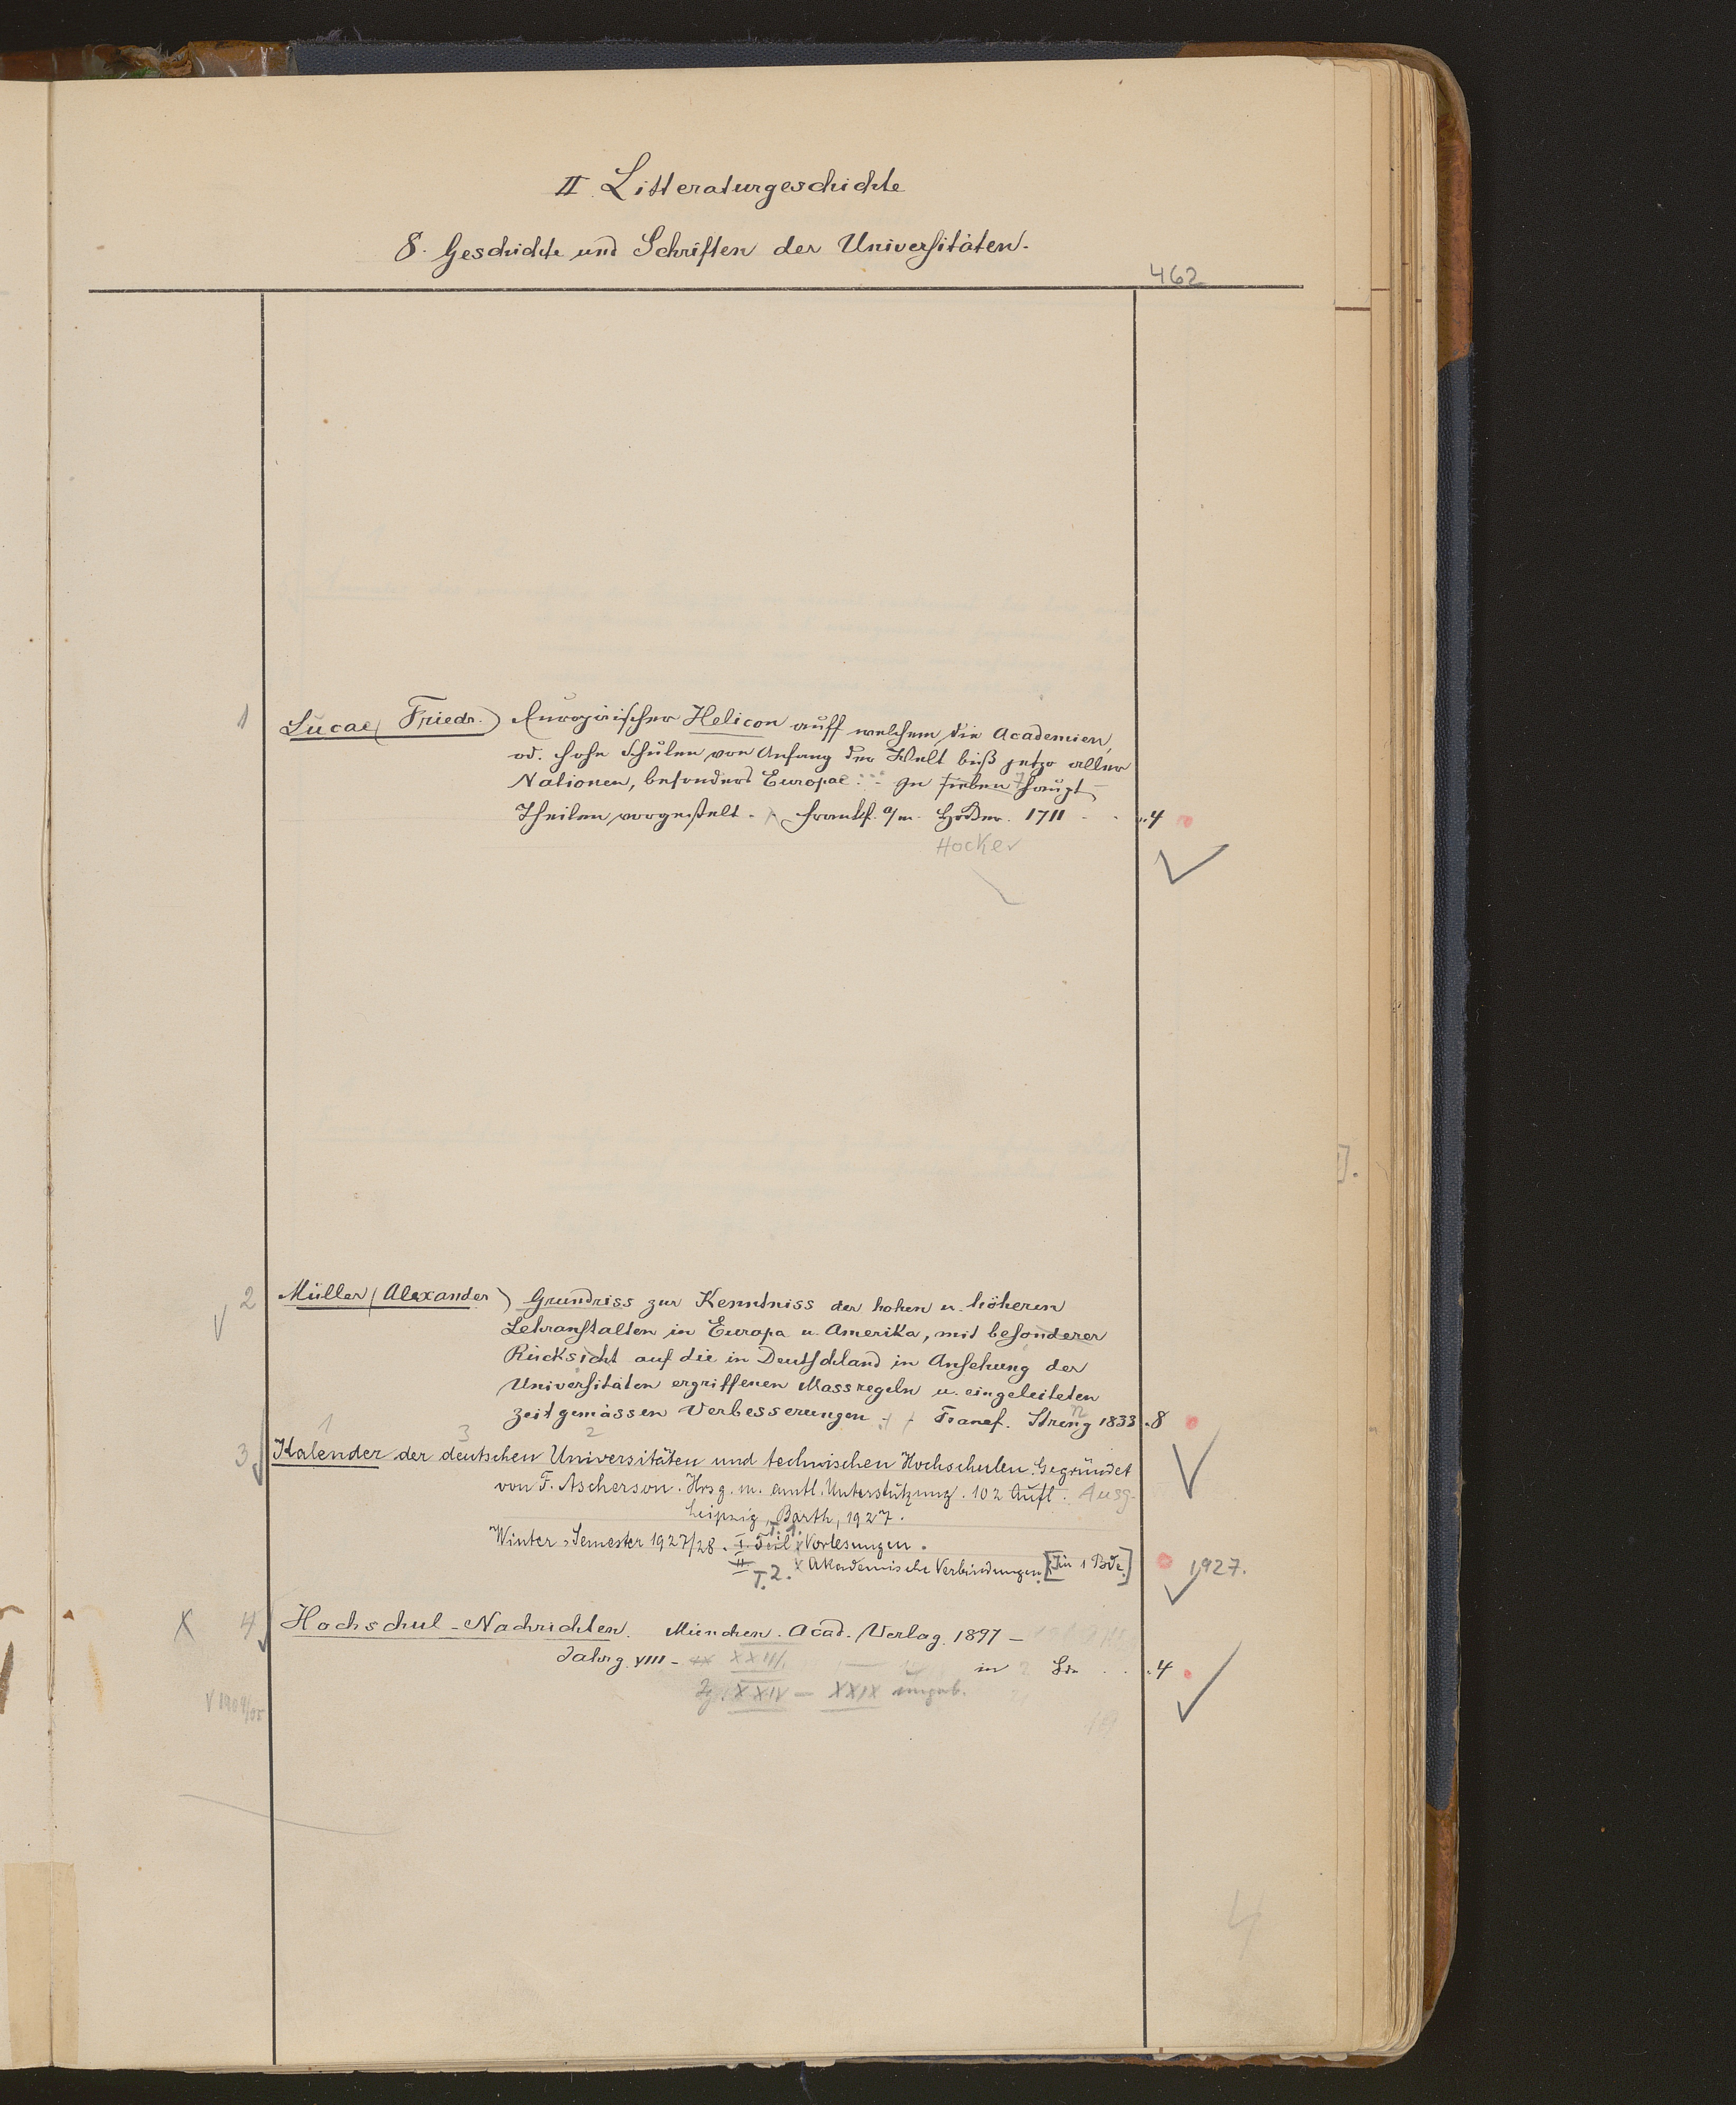 II. Litteraturgeschichte
8. Geschichte und Schriften der Universitäten.
462
1 Lucae (Friedr.) Europäischer Helicon auff welchem die Academien,
od. hohe Schulen von Anfang der Welt biß jetzo aller
Nationen, besonders Europae. In sieben 7 Haupt-
Theilen vorgestelt. Frankf. a/m. 1711 . . 4
Hocker
2 Müller (Alexander) Grundriss zur Kenntniss der hohen u. höheren
Lehranstalten in Europa u. Amerika, mit besonderer
Rücksicht auf die in Deutschland in Ansehung der
Universitäten ergriffenen Massregeln u. eingeleiteten
zeitgemässen Verbesserungen. Francf. Streng 1833 . 8
1 3 2
3 Kalender der deutschen Universitäten und technischen Hochschulen. Gegründet
von F. Ascherson. Hrsg. m. amtl. Unterstützung. 102 Aufl. Ausg.
Leipzig, Barth, 1927.
Winter-Semester 1927/28. I. Teil T. 1. Vorlesungen.
II T. 2. Akademische Verbindungen. [In 1 Bde.] 1927.
X 4 Hochschul-Nachrichten. München. Acad. Verlag. 1897 –
Jahrg. VIII – XXIII. in Bdn . . 4
Jg. XXIV – XXIX ungeb.
V 1904/05
19
4